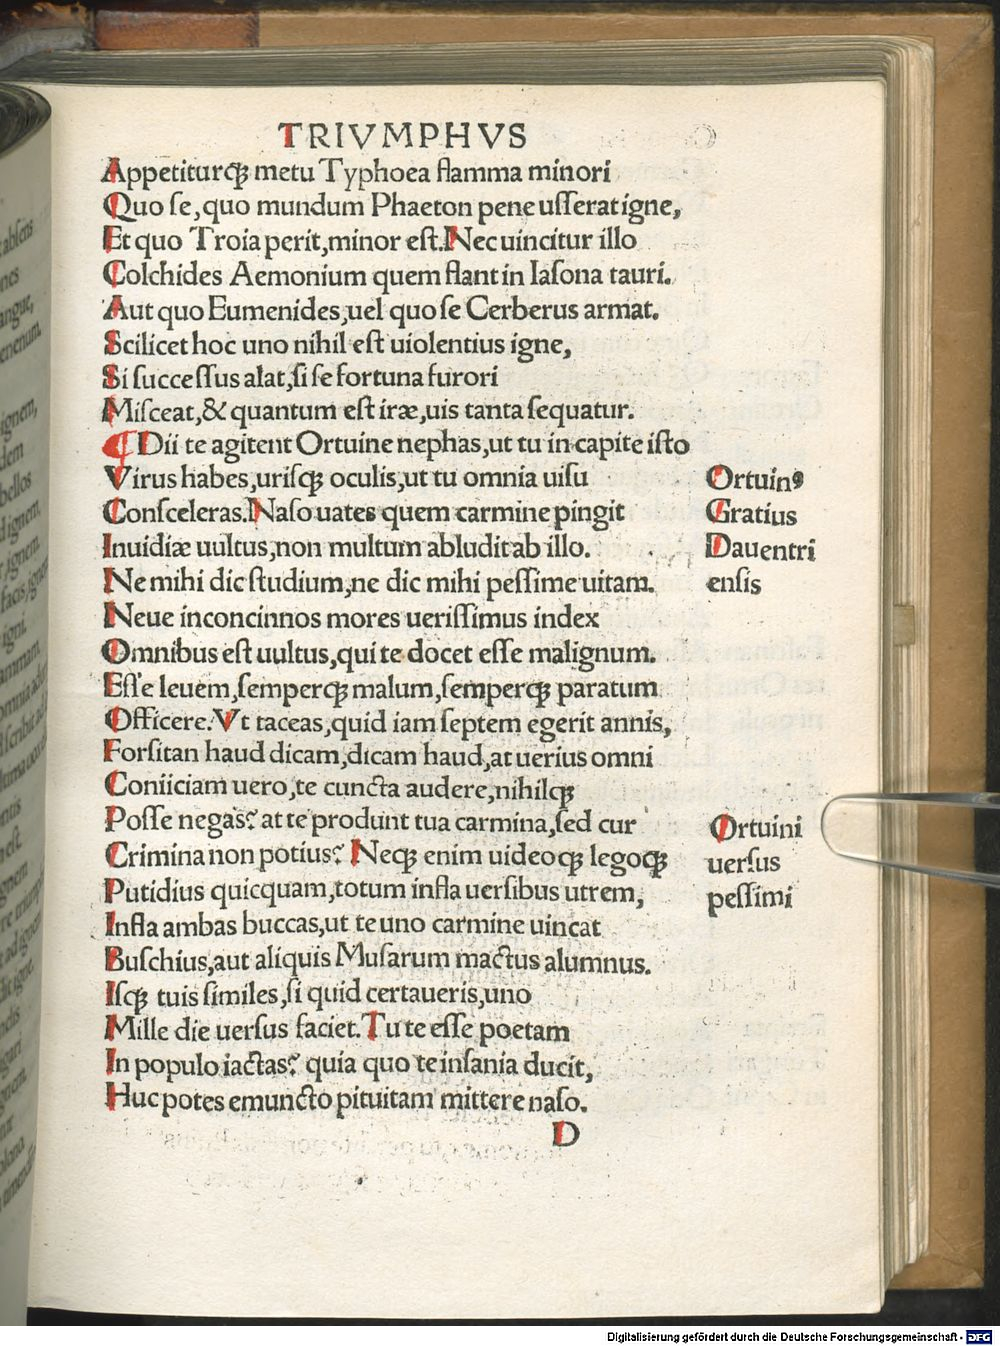 TRIVMPHVS
Appetiturqꝫ metu Typhoea flamma minori
Quo ſe, quo mundum Phaeton pene uſſerat igne,
Et quo Troia perit, minor eſt. Nec uincitur illo
Colchides Aemonium quem flant in Iaſona tauri.
Aut quo Eumenides, uel quo ſe Cerberus armat.
Scilicet hoc uno nihil eſt uiolentius igne,
Si ſucceſſus alat, ſi ſe fortuna furori
Miſceat, & quantum eſt iræ, uis tanta ſequatur.
¶ Dii te agitent Ortuine nephas, ut tu in capite iſto
Virus habes, uriſqꝫ oculis, ut tu omnia uiſu
Conſceleras. Naſo uates quem carmine pingit
Inuidiæ uultus, non multum abludit ab illo.
Ne mihi dic ſtudium, ne dic mihi peſſime uitam.
Neue inconcinnos mores ueriſſimus index
Omnibus eſt uultus, qui te docet eſſe malignum.
Eſſe leuem, ſemperqꝫ malum, ſemperqꝫ paratum
Officere. Vt taceas, quid iam ſeptem egerit annis,
Forſitan haud dicam, dicam haud, at uerius omni
Coniiciam uero, te cuncta audere, nihilqꝫ
Poſſe negas? at te produnt tua carmina, ſed cur
Crimina non potius? Neqꝫ enim uideoqꝫ legoqꝫ
Putidius quicquam, totum infla uerſibus utrem,
Infla ambas buccas, ut te uno carmine uincat
Buſchius, aut aliquis Muſarum mactus alumnus.
Iſqꝫ tuis ſimiles, ſi quid certaueris, uno
Mille die uerſus faciet. Tu te eſſe poetam
In populo iactas? quia quo te inſania ducit,
Huc potes emuncto pituitam mittere naſo.
D
Ortuinꝰ
Gratius
Dauentri
enſis
Ortuini
uerſus
peſſimi
Digitalisierung gefördert durch die Deutsche Forschungsgemeinschaft - DFG